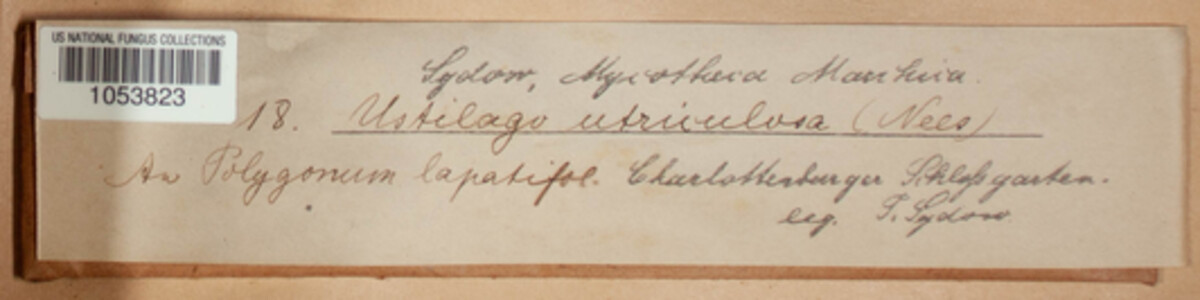 US NATIONAL FUNGUS COLLECTIONS
1053823
Sydow, Mycotheca Marchica.
18. Ustilago utriculosa (Nees)
An Polygonum lapatifol. Charlottenburger Schloßgarten.
leg. P. Sydow.